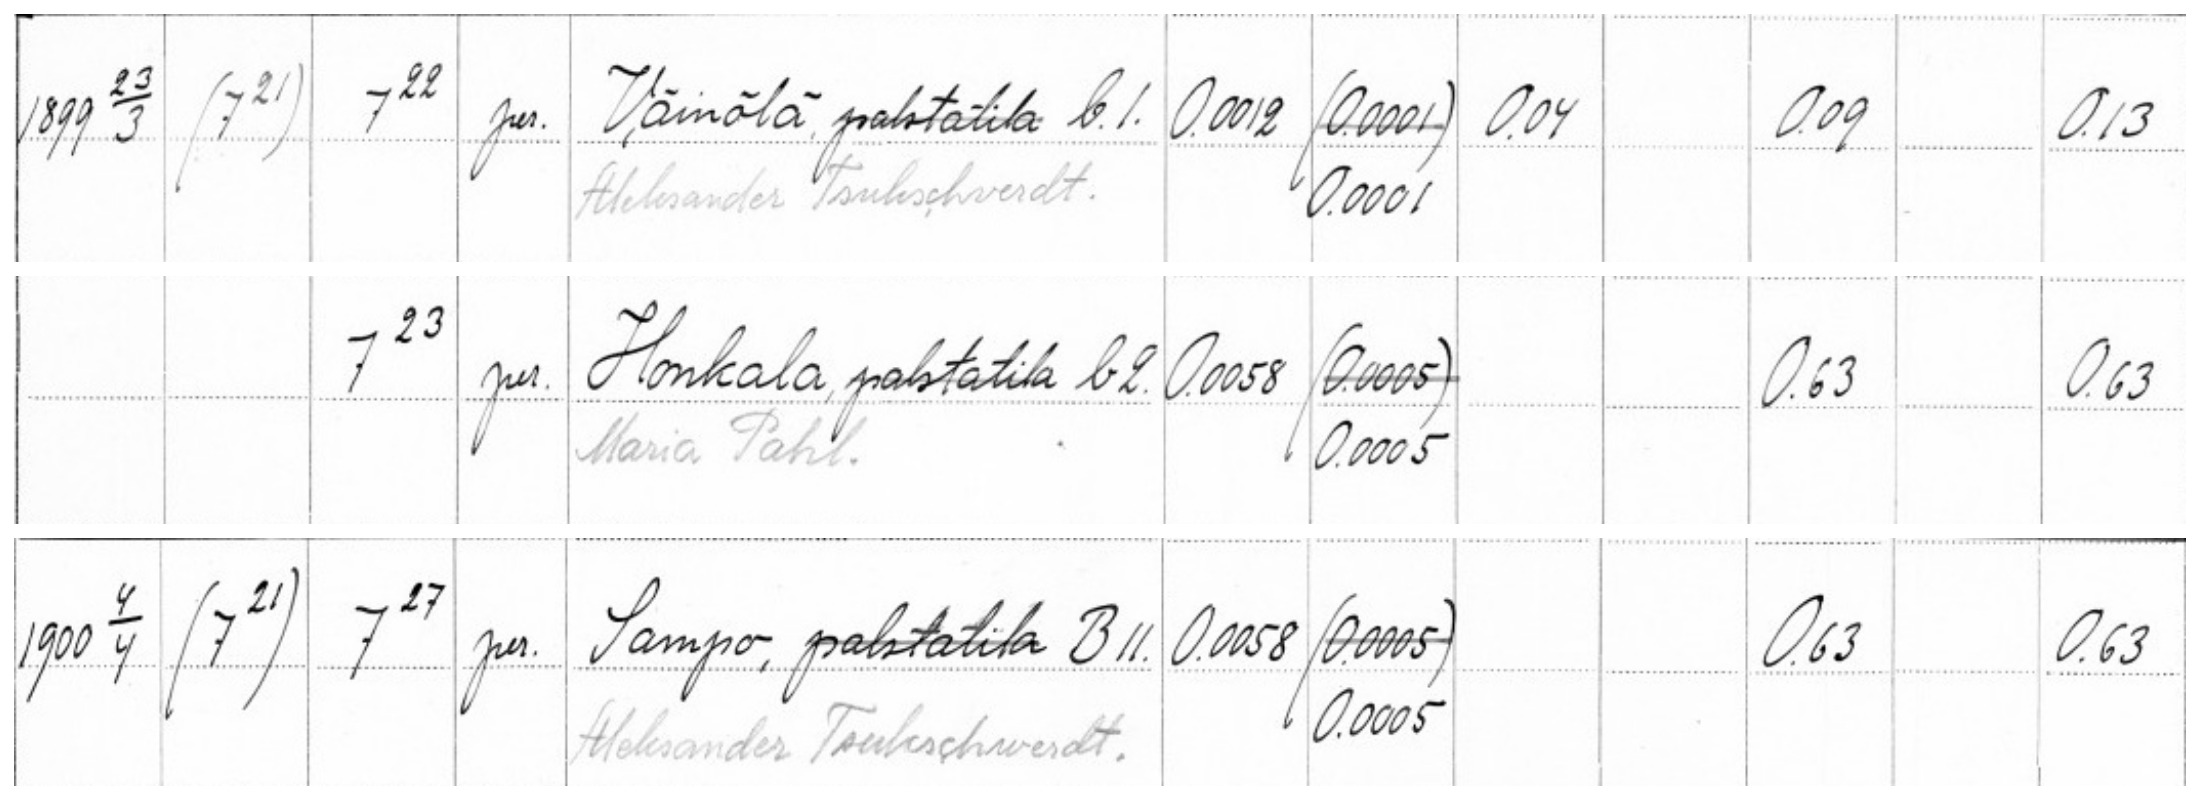 1899 23/3 (7 21) 7 22 per. Väinölä, palstatila b.1. 0.0012 (0.0001) 0.04 0.09 0.13
Aleksander Tsukschverdt. 0.0001
7 23 per. Honkala, palstatila b2. 0.0058 (0.0005) 0.63 0.63
Maria Pahl. 0.0005
1900 4/4 (7 21) 7 27 per. Sampo, palstatila B 11. 0.0058 (0.0005) 0.63 0.63
Aleksander Tsukschwerdt. 0.0005